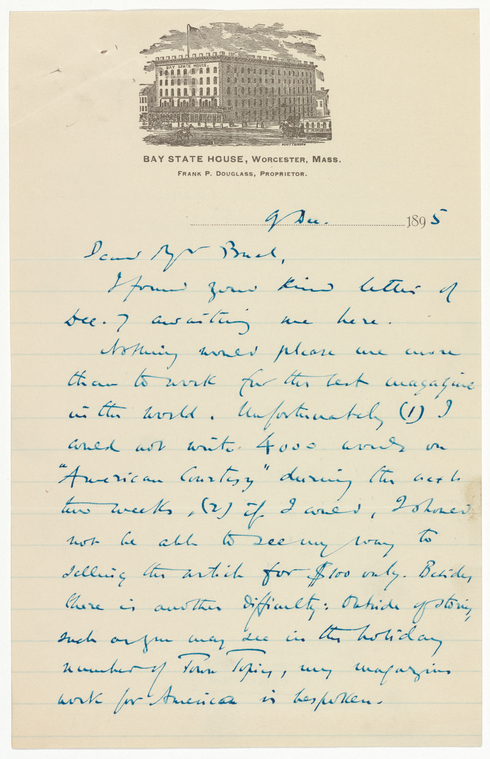 BAY STATE HOUSE
BAY STATE HOUSE, WORCESTER, MASS.
FRANK P. DOUGLASS, PROPRIETOR.
9 Dec. 1895
Dear Mr Buel,
I found your kind letter of
Dec. 7 awaiting me here.
Nothing would please me more
than to work for the best magazine
in the world. Unfortunately (1) I
could not write 4000 words on
"American Courtesy" during the next
two weeks, (2) if I could, I should
not be able to see my way to
selling the article for $100 only. Besides,
there is another difficulty: Outside of story,
such as you may see in the holiday
number of Town Topics, my magazine
work for America is bespoken.